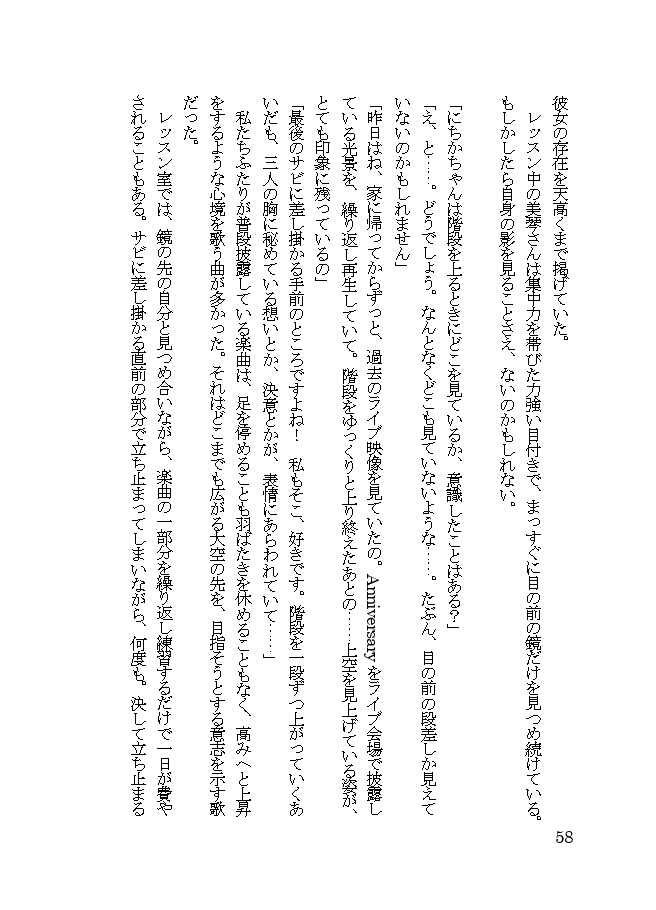 彼女の存在を天高くまで掲げていた。
　レッスン中の美琴さんは集中力を帯びた力強い目付きで、まっすぐに目の前の鏡だけを見つめ続けている。
もしかしたら自身の影を見ることさえ、ないのかもしれない。
「にちかちゃんは階段を上るときにどこを見ているか、意識したことはある？」
「え、と……。どうでしょう。なんとなくどこも見ていないような……。たぶん、目の前の段差しか見えて
いないのかもしれません」
「昨日はね、家に帰ってからずっと、過去のライブ映像を見ていたの。Anniversaryをライブ会場で披露し
ている光景を、繰り返し再生していて。階段をゆっくりと上り終えたあとの……上空を見上げている姿が、
とても印象に残っているの」
「最後のサビに差し掛かる手前のところですよね！　私もそこ、好きです。階段を一段ずつ上がっていくあ
いだも、三人の胸に秘めている想いとか、決意とかが、表情にあらわれていて……」
　私たちふたりが普段披露している楽曲は、足を停めることも羽ばたきを休めることもなく、高みへと上昇
をするような心境を歌う曲が多かった。それはどこまでも広がる大空の先を、目指そうとする意志を示す歌
だった。
　レッスン室では、鏡の先の自分と見つめ合いながら、楽曲の一部分を繰り返し練習するだけで一日が費や
されることもある。サビに差し掛かる直前の部分で立ち止まってしまいながら、何度も。決して立ち止まる
58